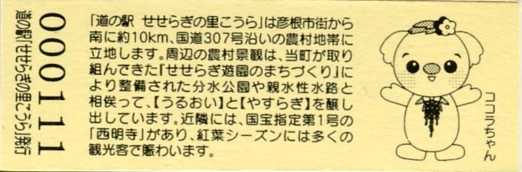 「道の駅 せせらぎの里こうら」は彦根市街から
南に約10km、国道307号沿いの農村地帯に
立地します。周辺の農村景観は、当町が取り
組んできた「せせらぎ遊園のまちづくり」に
より整備された分水公園や親水性水路と
相俟って、【うるおい】と【やすらぎ】を醸し
出しています。近隣には、国宝指定第1号の
「西明寺」があり、紅葉シーズンには多くの
観光客で賑わいます。
ココラちゃん
000111
道の駅「せせらぎの里こうら」発行